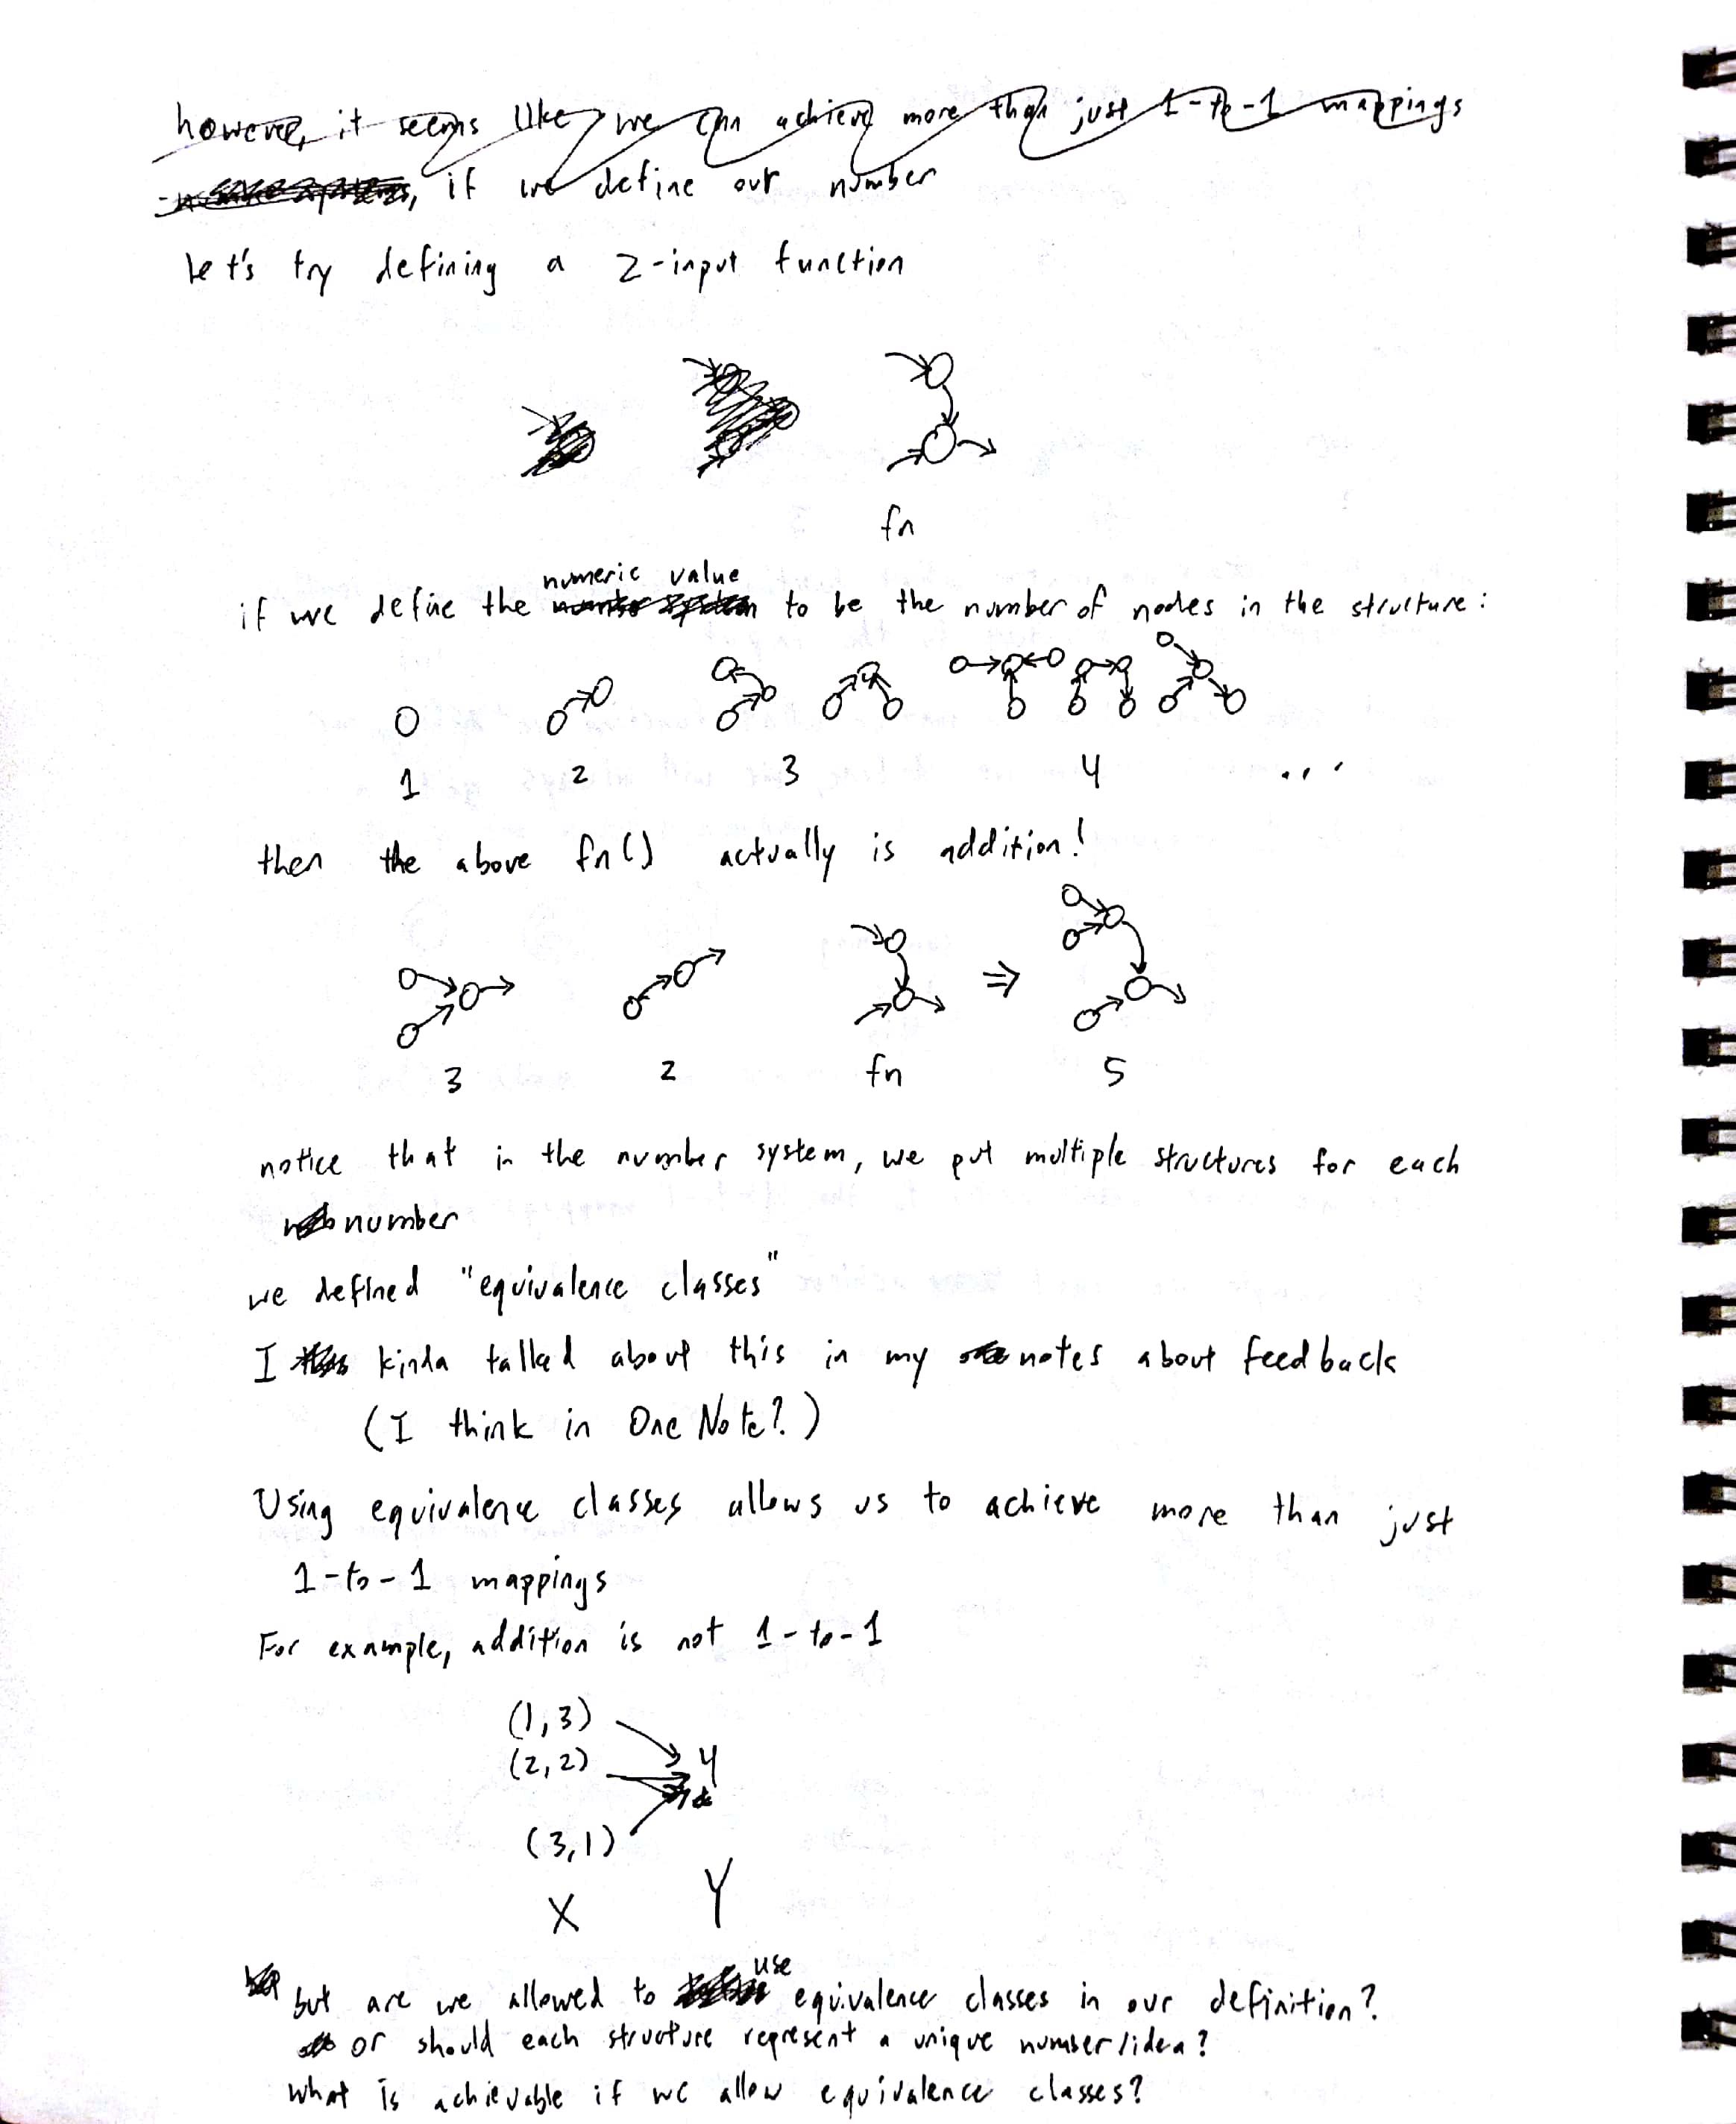 however, it seems like we can achieve more than just 1-to-1 mappings
if we define our number
let's try defining a 2-input function
fn
numeric value
if we define the to be the number of nodes in the structure:
1 2 3 4 ...
then the above fn() actually is addition!
3 2 fn ⇒ 5
notice that in the number system, we put multiple structures for each
number
we defined "equivalence classes"
I kinda talked about this in my notes about feedback
(I think in OneNote?)
Using equivalence classes allows us to achieve more than just
1-to-1 mappings
For example, addition is not 1-to-1
(1,3)
(2,2) 4
(3,1)
X Y
use
but are we allowed to equivalence classes in our definition?
or should each structure represent a unique number/idea?
What is achievable if we allow equivalence classes?